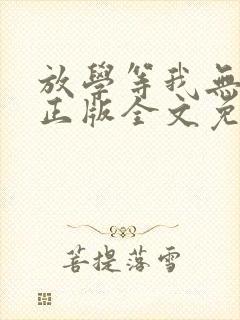 放學等我無
正版全文免
菩提落雪